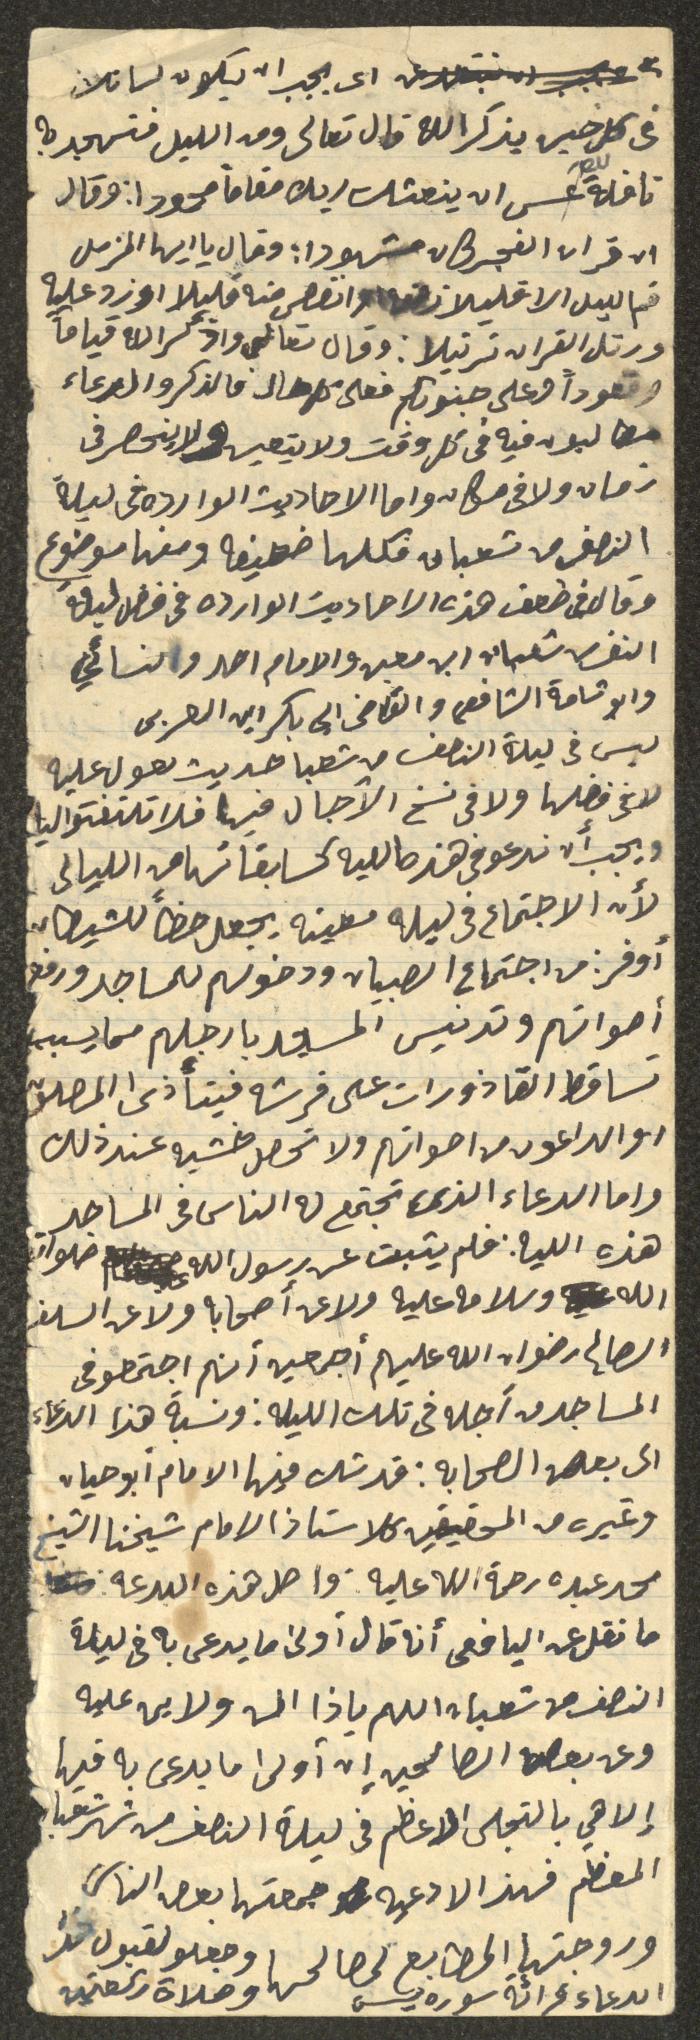 اى يجب ان يكون لساننا
فى كل حين يذكر الله قال تعالى ومن الليل فتهجد به
نافلة لك عسى ان يبعثك ربك مقاماً محمودا: وقال
ان قران الفجر كان مشهودا: وقال يا ايها المزمل
قم الليل الا قليلا نصفه او انقص منه قليلا او زد عليه
ورتل القران ترتيلا: وقال تعالى واذكر الله قياماً
وقعوداً وعلى جنوبكم فعلى كل حال فالذكر والدعاء
مطالبون فيه فى كل وقت ولا يتعين ولا ينحصر فى
زمان ولا فى مكان واما الاحاديث الوارده فى ليلة
النصف من شعبان فكلها ضعيفه ومنها موضوع
وقال فى ضعف هذه الاحاديث الوارده فى فضل ليلة
النصف شعبان ابن معين والامام احمد والنسائي
وابو شامة الشافعى والقاضى ابى بكر ابن العربى
ليس فى ليلة النصف من شعبا حديث يعول عليه
لا فى فضلها ولا فى نسخ الآجال فيها فلا تلتفتوا اليها
ويجب أن ندعو فى هذه الليله كسابقاتها من الليالى
لأن الاجتماع فى ليله معينه يجعل حظاً للشيطان
أوفر: من اجتماع الصبيان ودخولهم للمساجد ورفع
أصواتهم وتدنيس المسجد بارجلهم مما يسبب
تساقط القاذورات على فرشه فيتأذى المصلون
او الداعون من اصواتهم ولا تحصل خشيه عند ذلك
واما الدعاء الذى تجتمع له الناس فى المساجد
هذه الليه: فلم يثبت عن رسول الله صلوات
الله وسلامه عليه ولا عن أصحابه ولا عن السلف
الصالح رضوان الله عليهم أجمعين أنهم اجتمعو فى
المساجد من أجله فى تلك الليله: ونسبة هذا الدعاء
الى بعض الصحابه: قد شك فيها الامام أبو حيان
وغيره من المحققين كالاستاذ الامام شيخنا الشيخ
محمد عبده رحمة الله عليه: واصل هذه البدعه
ما نقل عن اليافعى أنه قال أولى ما يدعى به فى ليلة
النصف من شعبان اللهم ياذا المن ولا يمن عليه
وعن بعض الصالحين إن أولى ما يدعى به فيها
إلاهي بالتجلى الاعظم فى ليلة النصف من شهر شعبان
المعظم فهذ الادعيه جمعتها بعض الناس
وروجتها المطابع لمصالحها وجعلو لقبول
الدعاء قرائة سوره يس وصلاة ركعتين